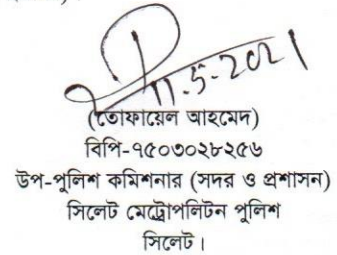 11-5-2021
(তোফায়েল আহমেদ)
বিপি-৭৫০৩০২৮২৫৬
উপ-পুলিশ কমিশনার (সদর ও প্রশাসন)
সিলেট মেট্রোপলিটন পুলিশ
সিলেট।